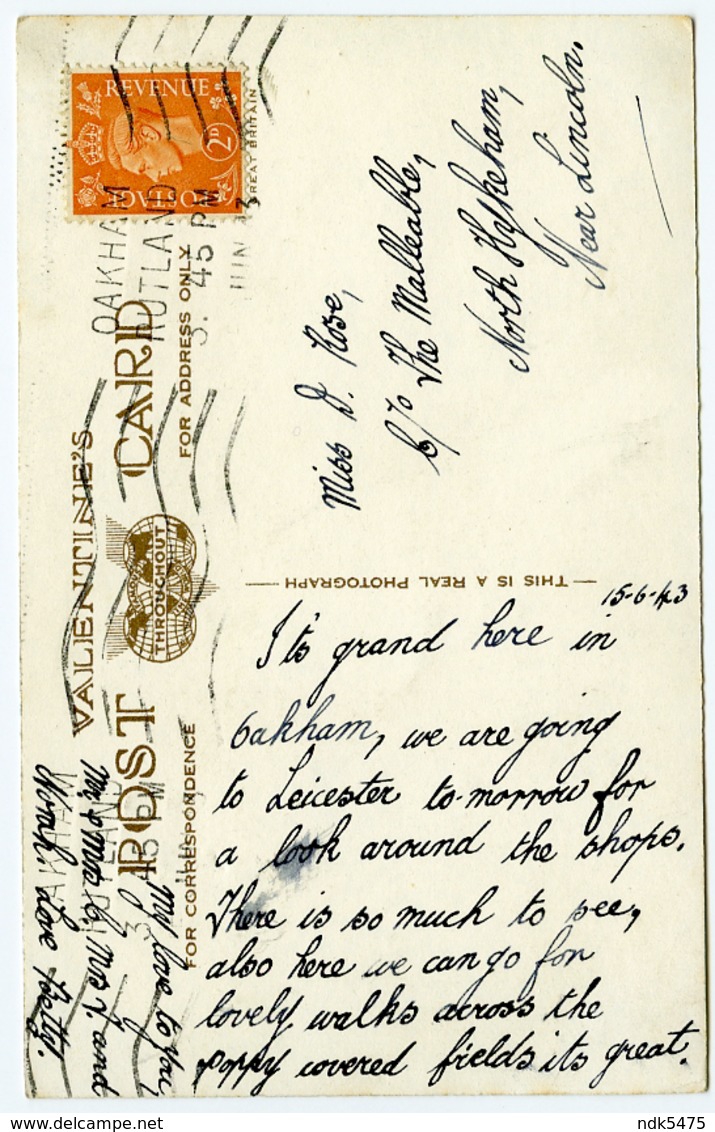 REVENUE
2D
GREAT BRITAIN
OAKHAM
RUTLAND
3. 45 PM
VALENTINE'S
POST CARD
THROUGHOUT
FOR CORRESPONDENCE
FOR ADDRESS ONLY
THIS IS A REAL PHOTOGRAPH
Miss D. Rose,
C/o The Malleable,
North Hykeham,
Near Lincoln.
15-6-43
It's grand here in
Oakham, we are going
to Leicester to-morrow for
a look around the shops.
There is so much to see,
also here we can go for
lovely walks across the
poppy covered fields its great.
My love to you,
Mr & Mrs C, Mrs J. and
Love Betty.
OAKHAM
RUTLAND
3 45 PM
ndk5475